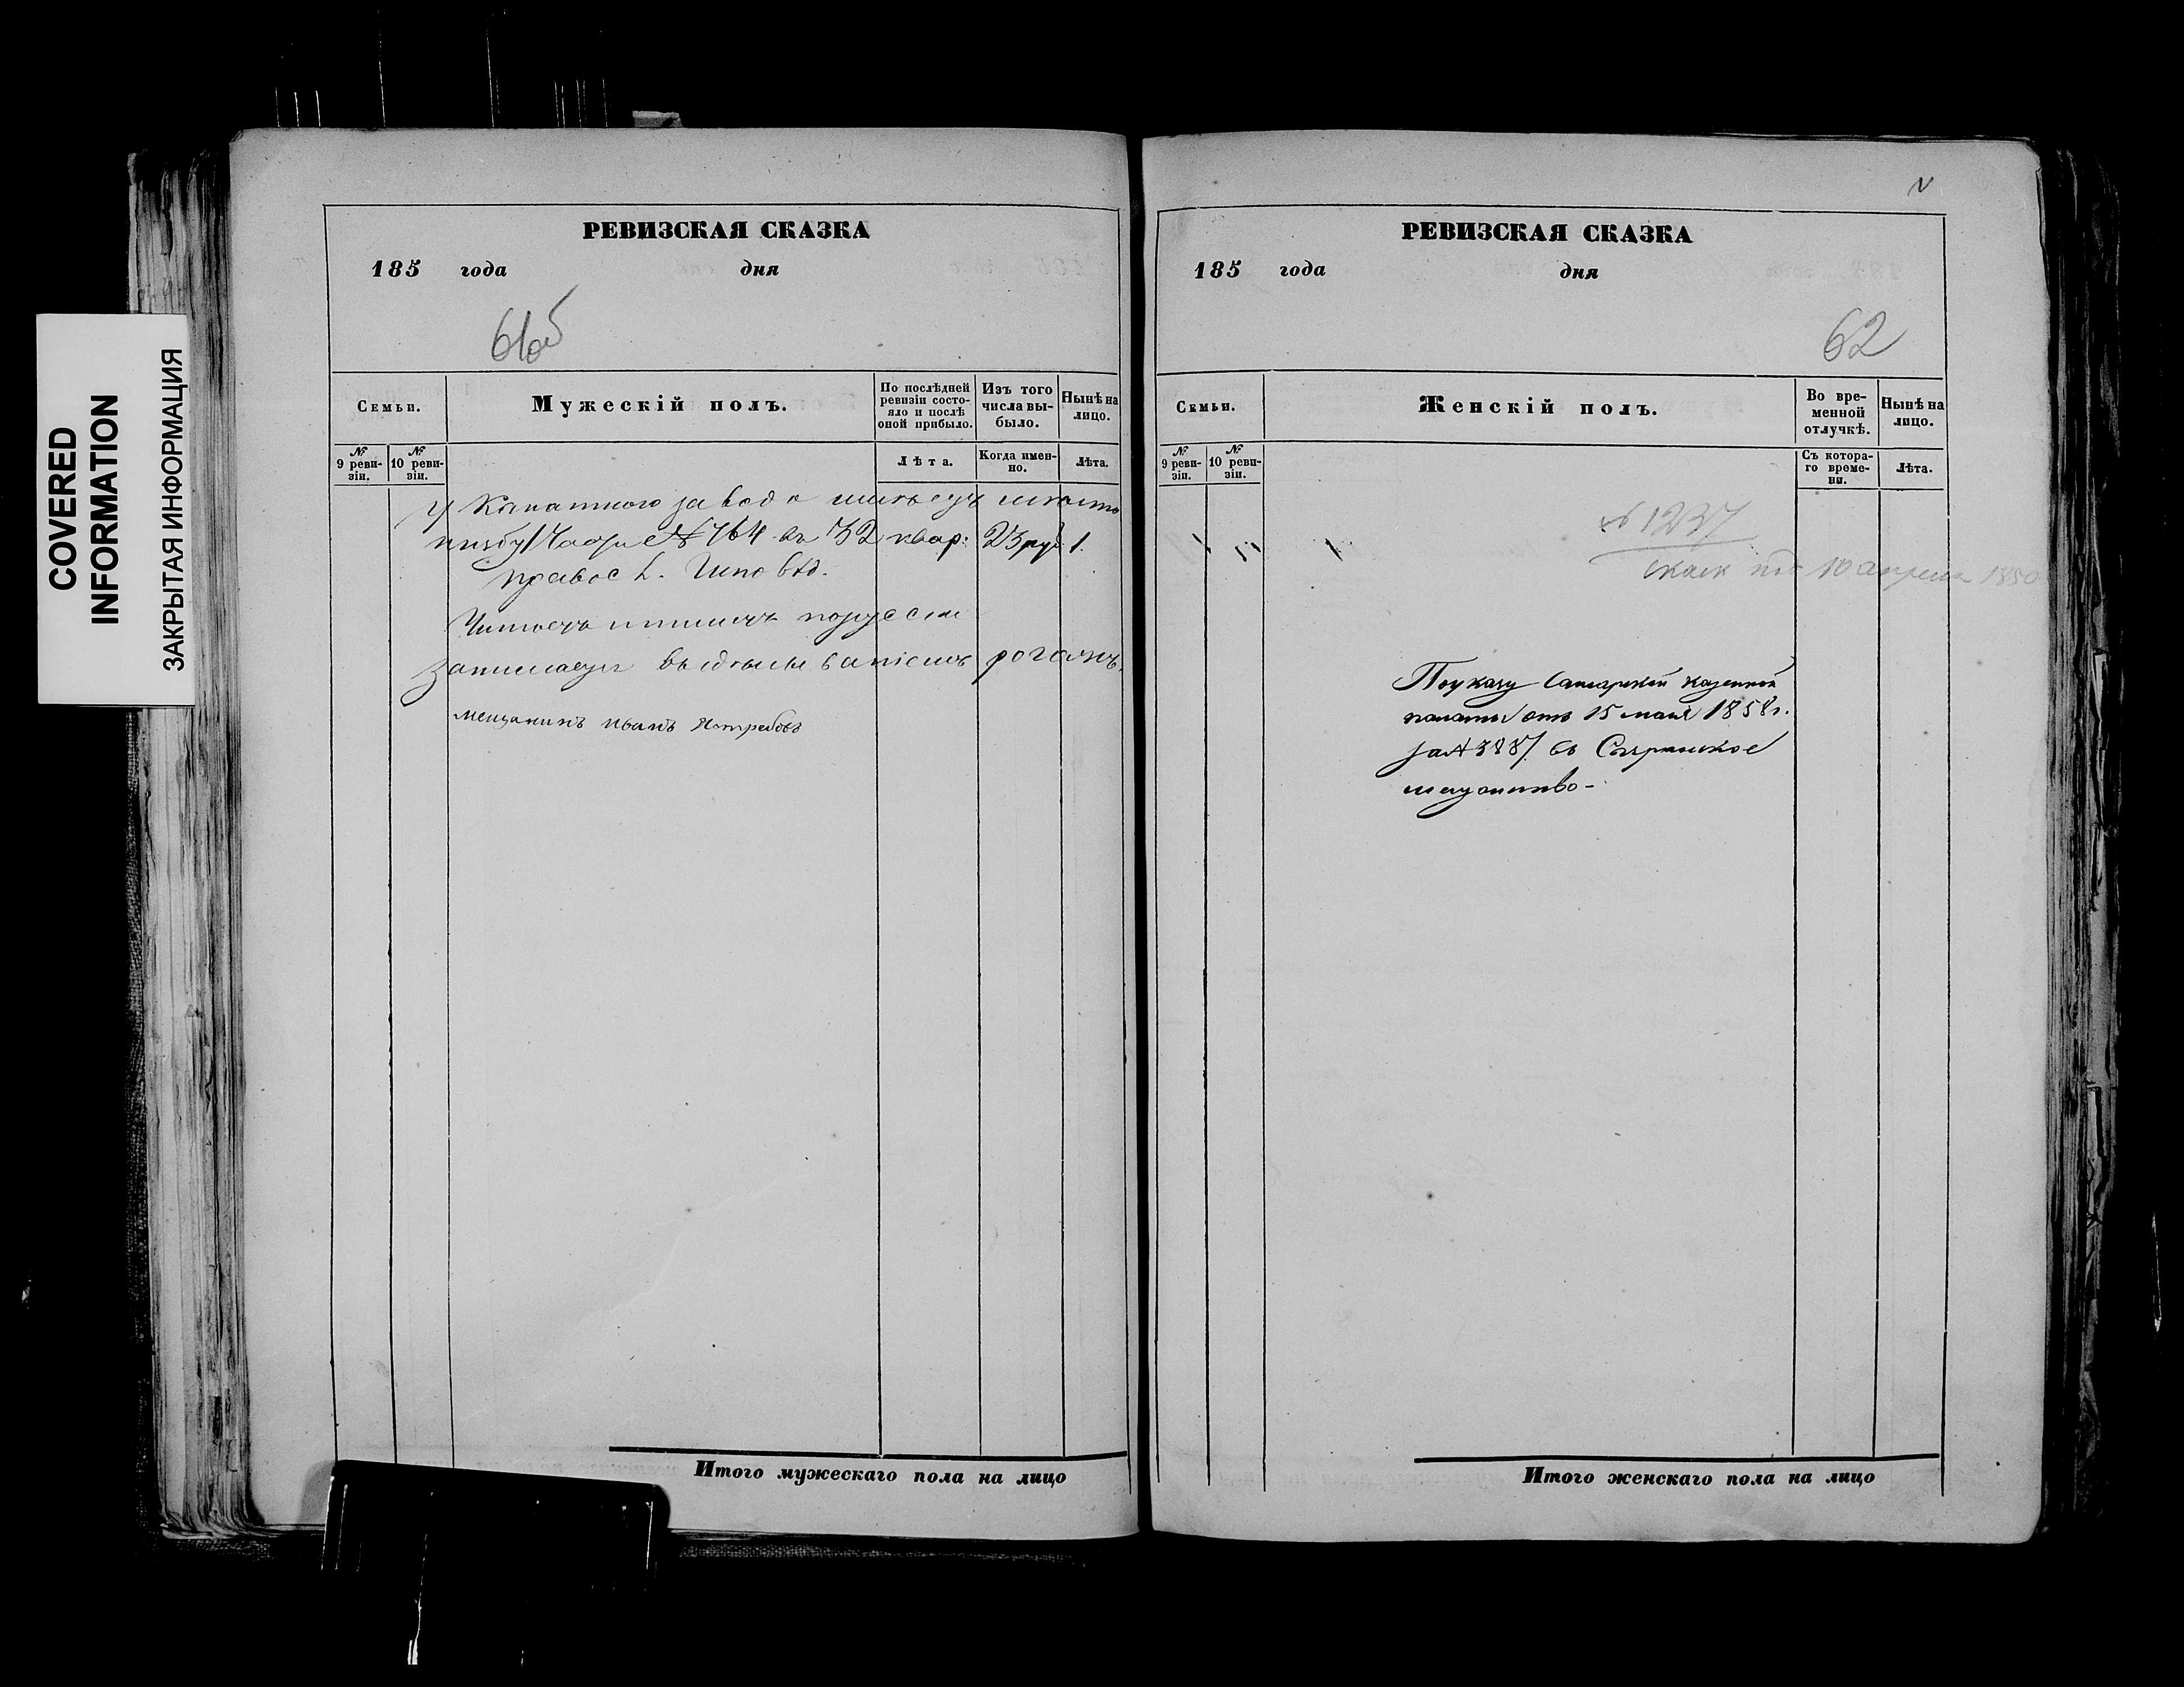 COVERED
INFORMATION
ЗАКРЫТАЯ ИНФОРМАЦИЯ
РЕВИЗСКАЯ СКАЗКА
185 года дня
61об
Семьи.
Мужескій полъ.
По послѣдней ревизіи состояло и послѣ оной прибыло.
Изъ того числа выбыло.
Нынѣ на лицо.
№ 9 ревизіи.
№ 10 ревизіи.
Лѣта.
Когда именно.
Лѣта.
У Канатнаго завода имѣетъ место
и избу части № 764 въ 32 квар: 23 руб 1.
правос
Читаетъ пишетъ
мещанинъ иванъ Ястребовъ
Итого мужескаго пола на лицо
РЕВИЗСКАЯ СКАЗКА
185 года дня
62
Семьи.
Женскій полъ.
Во временной отлучкѣ.
Нынѣ на лицо.
№ 9 ревизіи.
№ 10 ревизіи.
Съ котораго времени.
Лѣта.
№ 1237
10 апреля 1850
По указу Самарской казенной
палаты отъ 15 мая 1858 г.
за № 3887 въ
мещанство-
Итого женскаго пола на лицо